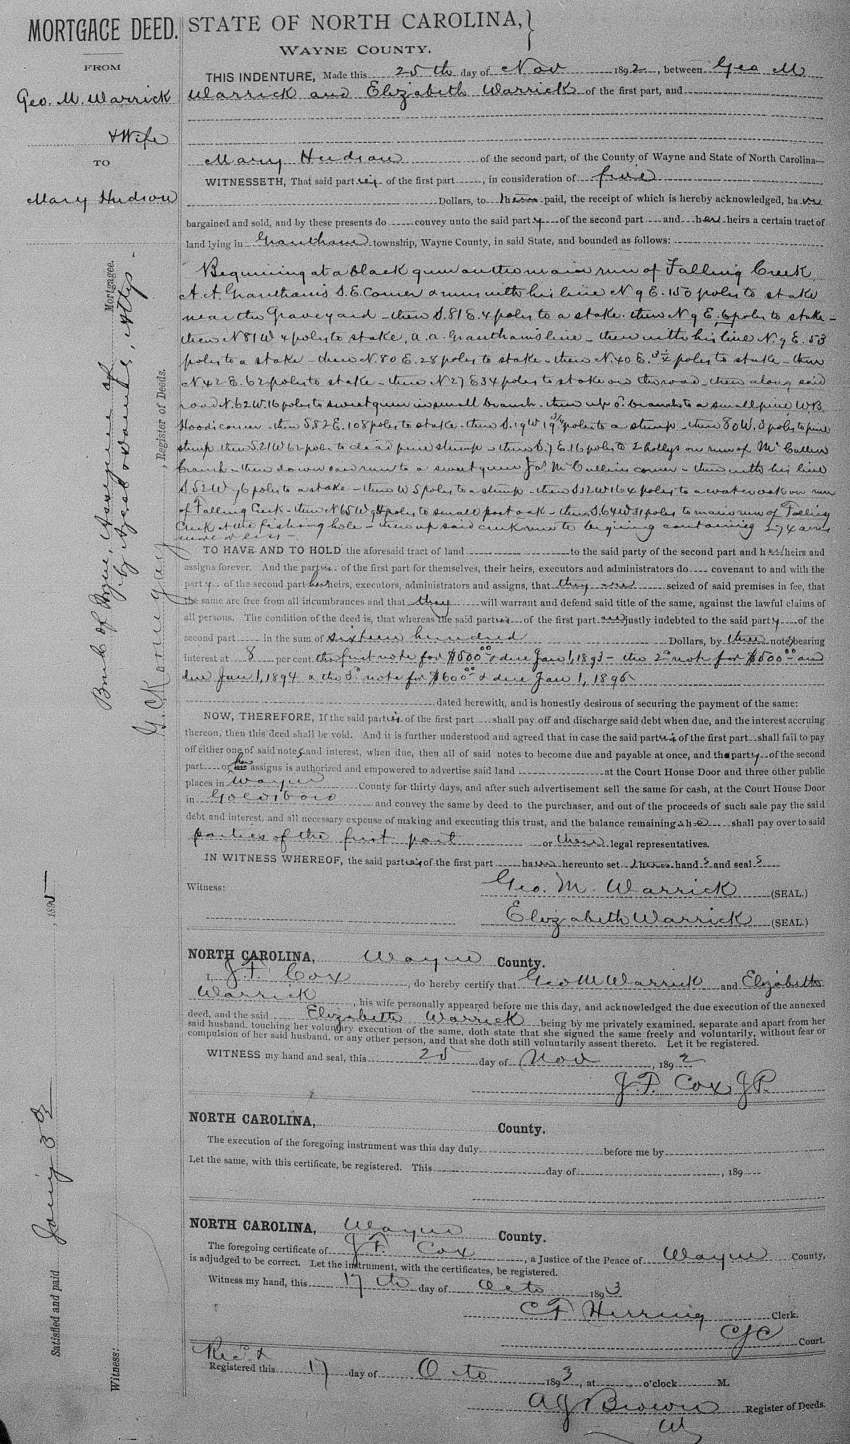 MORTGAGE DEED.
FROM
Geo. M. Warrick
& Wife
TO
Mary Hudson
STATE OF NORTH CAROLINA,
WAYNE COUNTY.
THIS INDENTURE, Made this 25th day of Nov 1892, between Geo M
Warrick and Elizabeth Warrick of the first part, and
Mary Hudson of the second part, of the County of Wayne and State of North Carolina
WITNESSETH, That said parties of the first part, in consideration of five
Dollars, to them paid, the receipt of which is hereby acknowledged, have
bargained and sold, and by these presents do convey unto the said party of the second part and her heirs a certain tract of
land lying in Grantham township, Wayne County, in said State, and bounded as follows:
Beginning at a black gum on the main run of Falling Creek
A. A. Grantham's S. E. Corner & runs with his line N 9 E. 150 poles to stake
near the Graveyard - then S. 81 E. 4 poles to a stake. then N 9 E. 6 poles to stake -
then N 81 W 4 poles to stake, A. A. Grantham's line - then with his line N. 9 E. 53
poles to a stake - then N. 80 E. 28 poles to stake - then N. 40 E. poles to stake - then
N 42 E. 62 poles to stake - then N 27 E 34 poles to stake on the road, then along said
road N. 62 W. 16 poles to sweet gum in small branch. then up sd branch to a small pine W. B.
Hood's corner - then S 82 E. 108 poles to stake - then S. 19 W. poles to a stump - then 80 W. poles to pine
stump then S 21 W 62 poles to dead pine stump - then E. 16 poles to 2 hollys on run of McCullen
branch - then down said run to a sweet gum McCullins corner - then with his line
S 52 W 76 poles to a stake - then W 5 poles to a stump - then S 12 W 164 poles to a water oak on run
of Falling Creek - then N 65 W poles to small post oak - then S. 64 W 31 poles to main run of Falling
Creek at the fishing hole - then up said creek run to beginning containing 274 acres
more or less -
TO HAVE AND TO HOLD the aforesaid tract of land to the said party of the second part and her heirs and
assigns forever. And the parties of the first part for themselves, their heirs, executors and administrators do covenant to and with the
party of the second part her heirs, executors, administrators and assigns, that they are seized of said premises in fee, that
the same are free from all incumbrances and that they will warrant and defend said title of the same, against the lawful claims of
all persons. The condition of the deed is, that whereas the said parties of the first part are justly indebted to the said party of the
second part in the sum of sixteen hundred Dollars, by three notes bearing
interest at 8 per cent. the first note for $500.00 & due Jan 1, 1893 - the 2d note for $500.00 and
due Jan 1, 1894 & the 3d note for $600.00 & due Jan 1, 1895
dated herewith, and is honestly desirous of securing the payment of the same:
NOW, THEREFORE, If the said parties of the first part shall pay off and discharge said debt when due, and the interest accruing
thereon, then this deed shall be void. And it is further understood and agreed that in case the said parties of the first part shall fail to pay
off either one of said notes and interest, when due, then all of said notes to become due and payable at once, and the party of the second
part or her assigns is authorized and empowered to advertise said land at the Court House Door and three other public
places in Wayne County for thirty days, and after such advertisement sell the same for cash, at the Court House Door
in Goldsboro and convey the same by deed to the purchaser, and out of the proceeds of such sale pay the said
debt and interest, and all necessary expense of making and executing this trust, and the balance remaining she shall pay over to said
parties of the first part or their legal representatives.
IN WITNESS WHEREOF, the said parties of the first part have hereunto set their hands and seals
Witness:
Geo. M. Warrick (SEAL.)
Elizabeth Warrick (SEAL.)
NORTH CAROLINA, Wayne County.
I, J. F. Cox, do hereby certify that Geo M Warrick and Elizabeth
Warrick, his wife personally appeared before me this day, and acknowledged the due execution of the annexed
deed, and the said Elizabeth Warrick being by me privately examined, separate and apart from her
said husband, touching her voluntary execution of the same, doth state that she signed the same freely and voluntarily, without fear or
compulsion of her said husband, or any other person, and that she doth still voluntarily assent thereto. Let it be registered.
WITNESS my hand and seal, this 25 day of Nov, 1892
J. F. Cox J.P.
NORTH CAROLINA, County.
The execution of the foregoing instrument was this day duly before me by
Let the same, with this certificate, be registered. This day of , 189
NORTH CAROLINA, Wayne County.
The foregoing certificate of J. F. Cox, a Justice of the Peace of Wayne County,
is adjudged to be correct. Let the instrument, with the certificates, be registered.
Witness my hand, this 17th day of Octo 1893
C F Herring Clerk.
CSC Court.
Recd &
Registered this 17 day of Octo 1893, at o'clock M.
A G Brown Register of Deeds.
Satisfied and paid Jany 30, 1895
Witness:
Bank of Wayne, Assignee of Mortgagee.
by Attys -
, Register of Deeds.